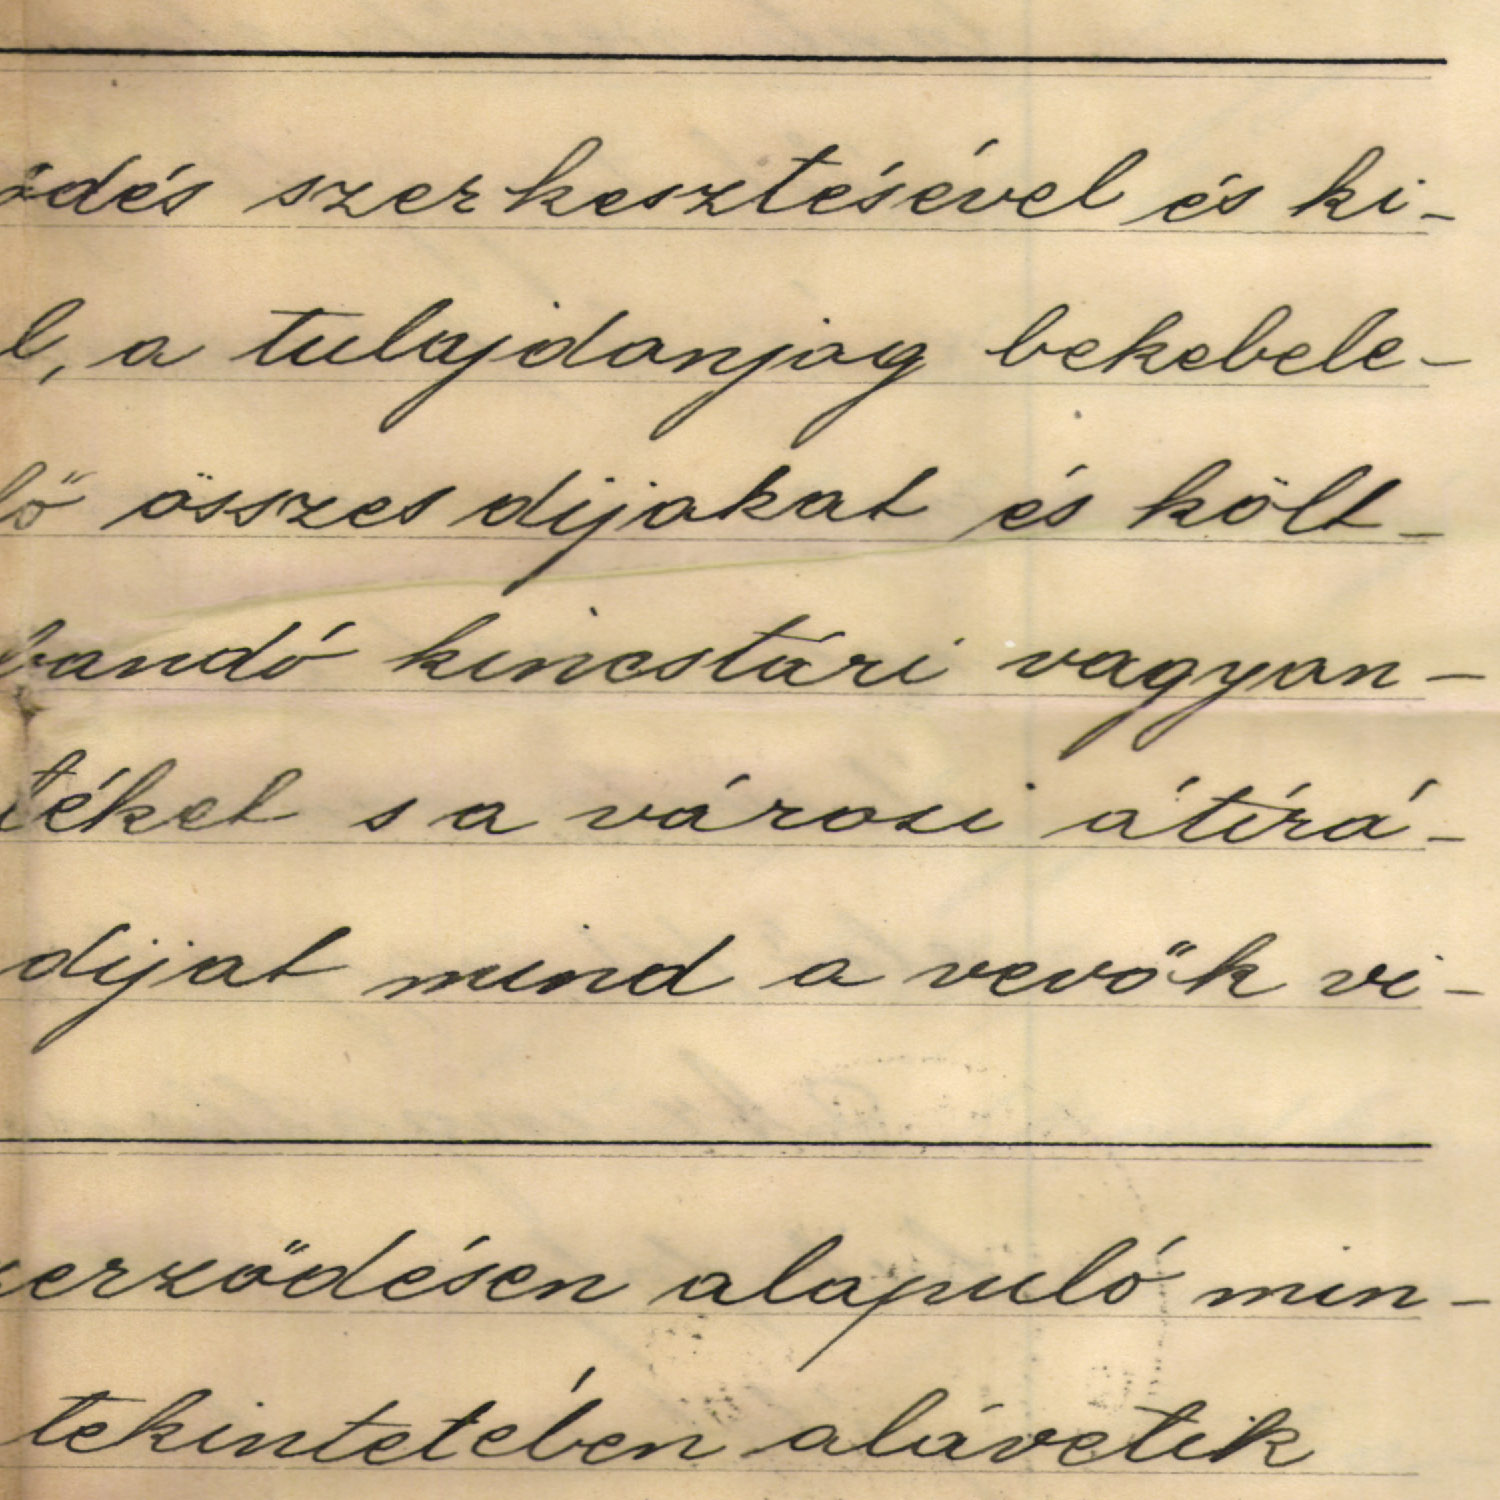 ődés szerkesztésével és ki-
l, a tulajdonjog bekebele-
lő összes dijakat és költ-
bandó kincstári vagyon-
téket s a városi átírá-
dijat mind a vevők vi-
zerződésen alapuló min-
tekintetében alávetik